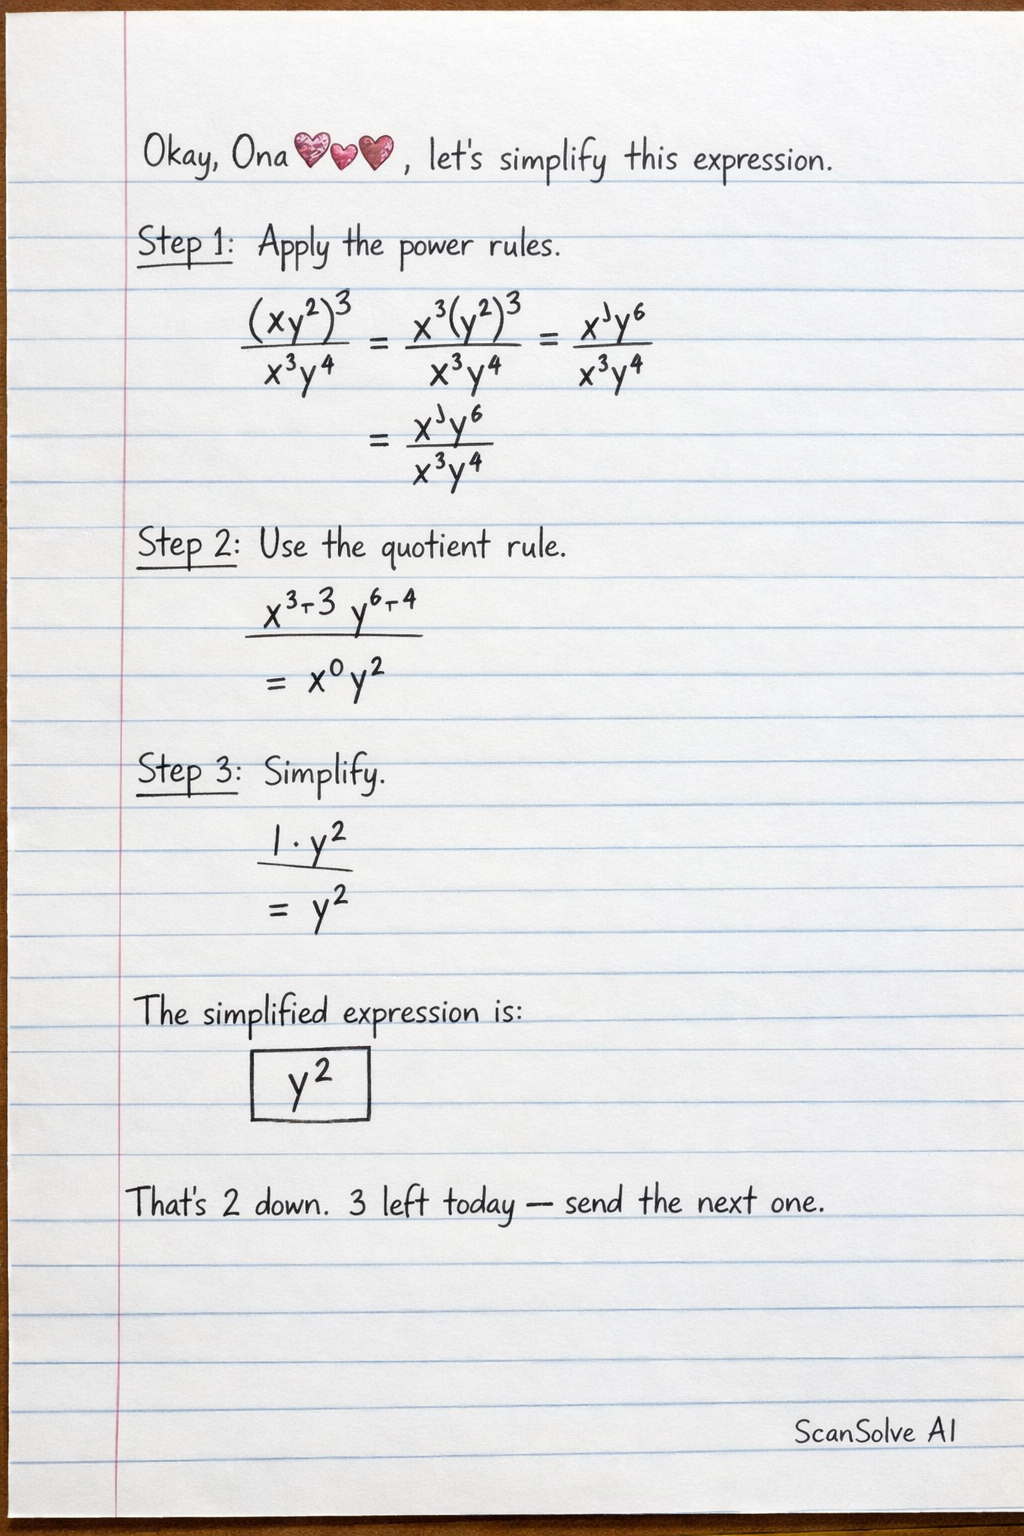 Okay, Ona💕💗, let's simplify this expression.
Step 1: Apply the power rules.
(xy²)³ / x³y⁴ = x³(y²)³ / x³y⁴ = xʲy⁶ / x³y⁴
= xʲy⁶ / x³y⁴
Step 2: Use the quotient rule.
x³⁻³ y⁶⁻⁴
= x⁰y²
Step 3: Simplify.
1 · y²
= y²
The simplified expression is:
y²
That's 2 down. 3 left today — send the next one.
ScanSolve AI